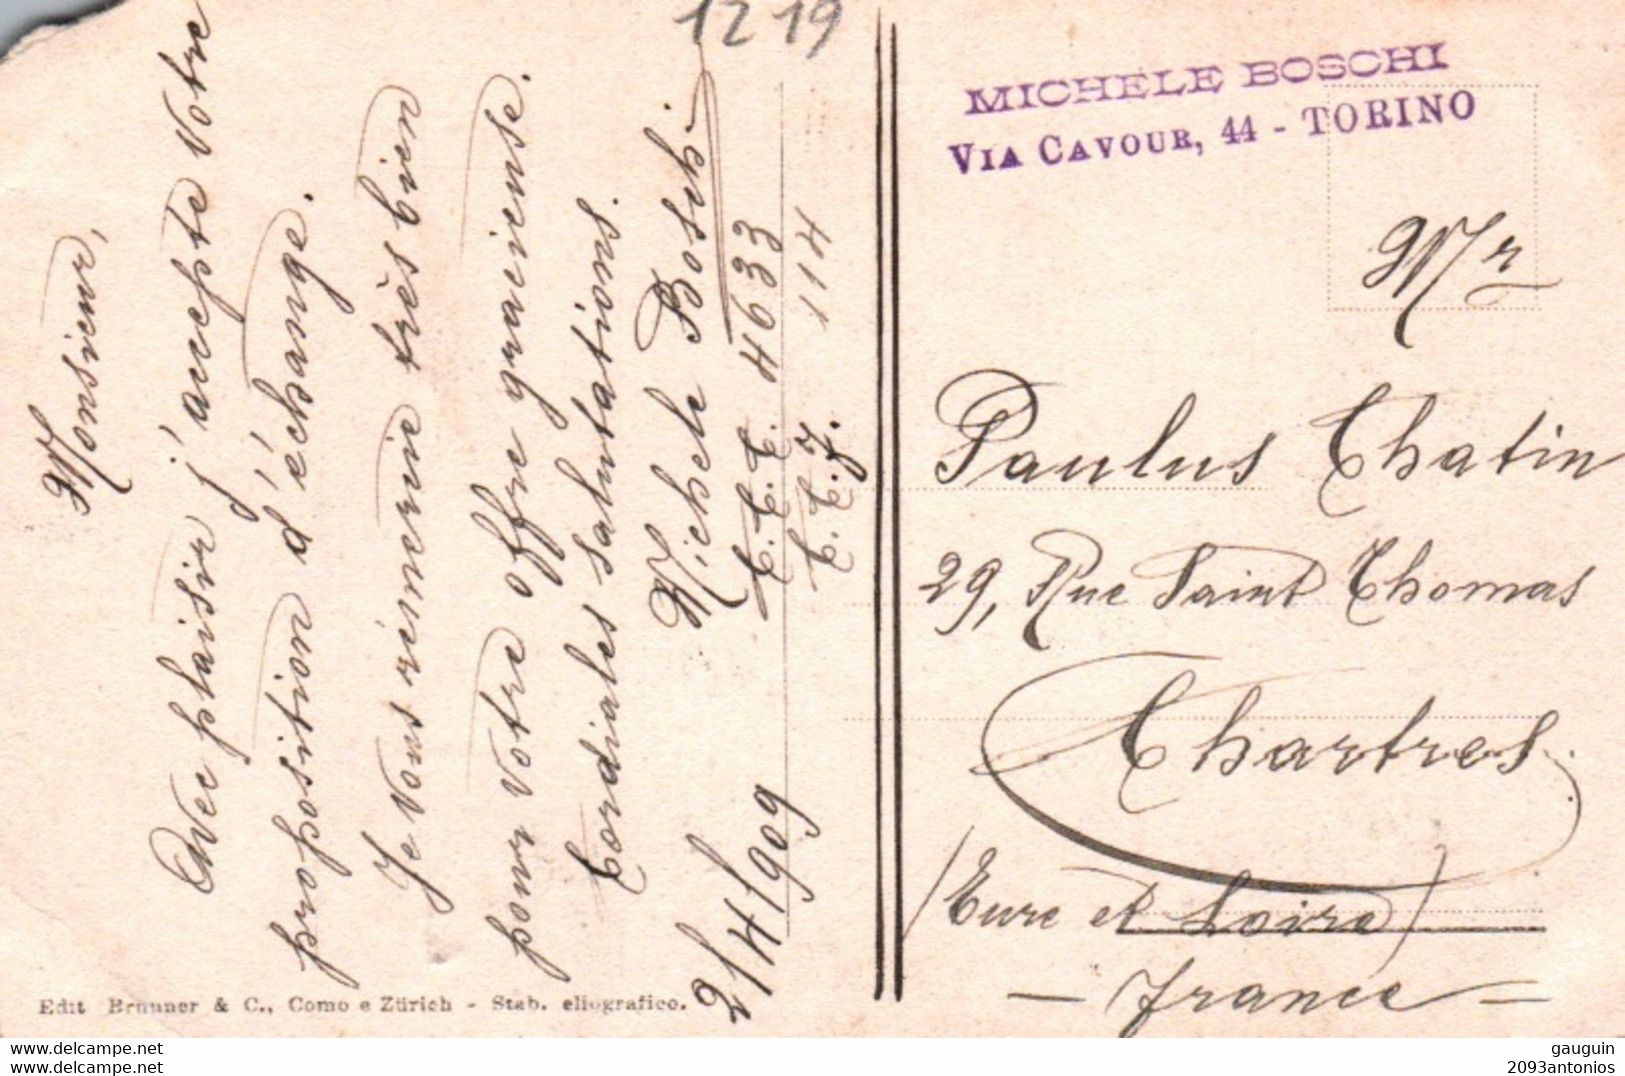 1219
Monsieur,
Avec plaisir j'accepte Votre
proposition d'échange.
Je vous remercie très bien
pour Votre offre gracieuse.
Cordiales salutations.
Michele Boschi
2/4/909
C.C.C. 4633
114
Edit Brunner & C., Como e Zürich - Stab. eliografico.
MICHELE BOSCHI
VIA CAVOUR, 44 - TORINO
Mr
Paulus Chatin
29, Rue Saint Thomas
Chartres.
(Eure et Loire)
— France =
www.delcampe.net
www.delcampe.net
gauguin
2093antonios